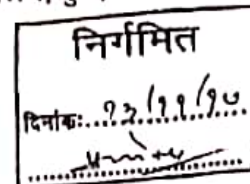 निर्गमित
दिनांक:..१३/११/१७